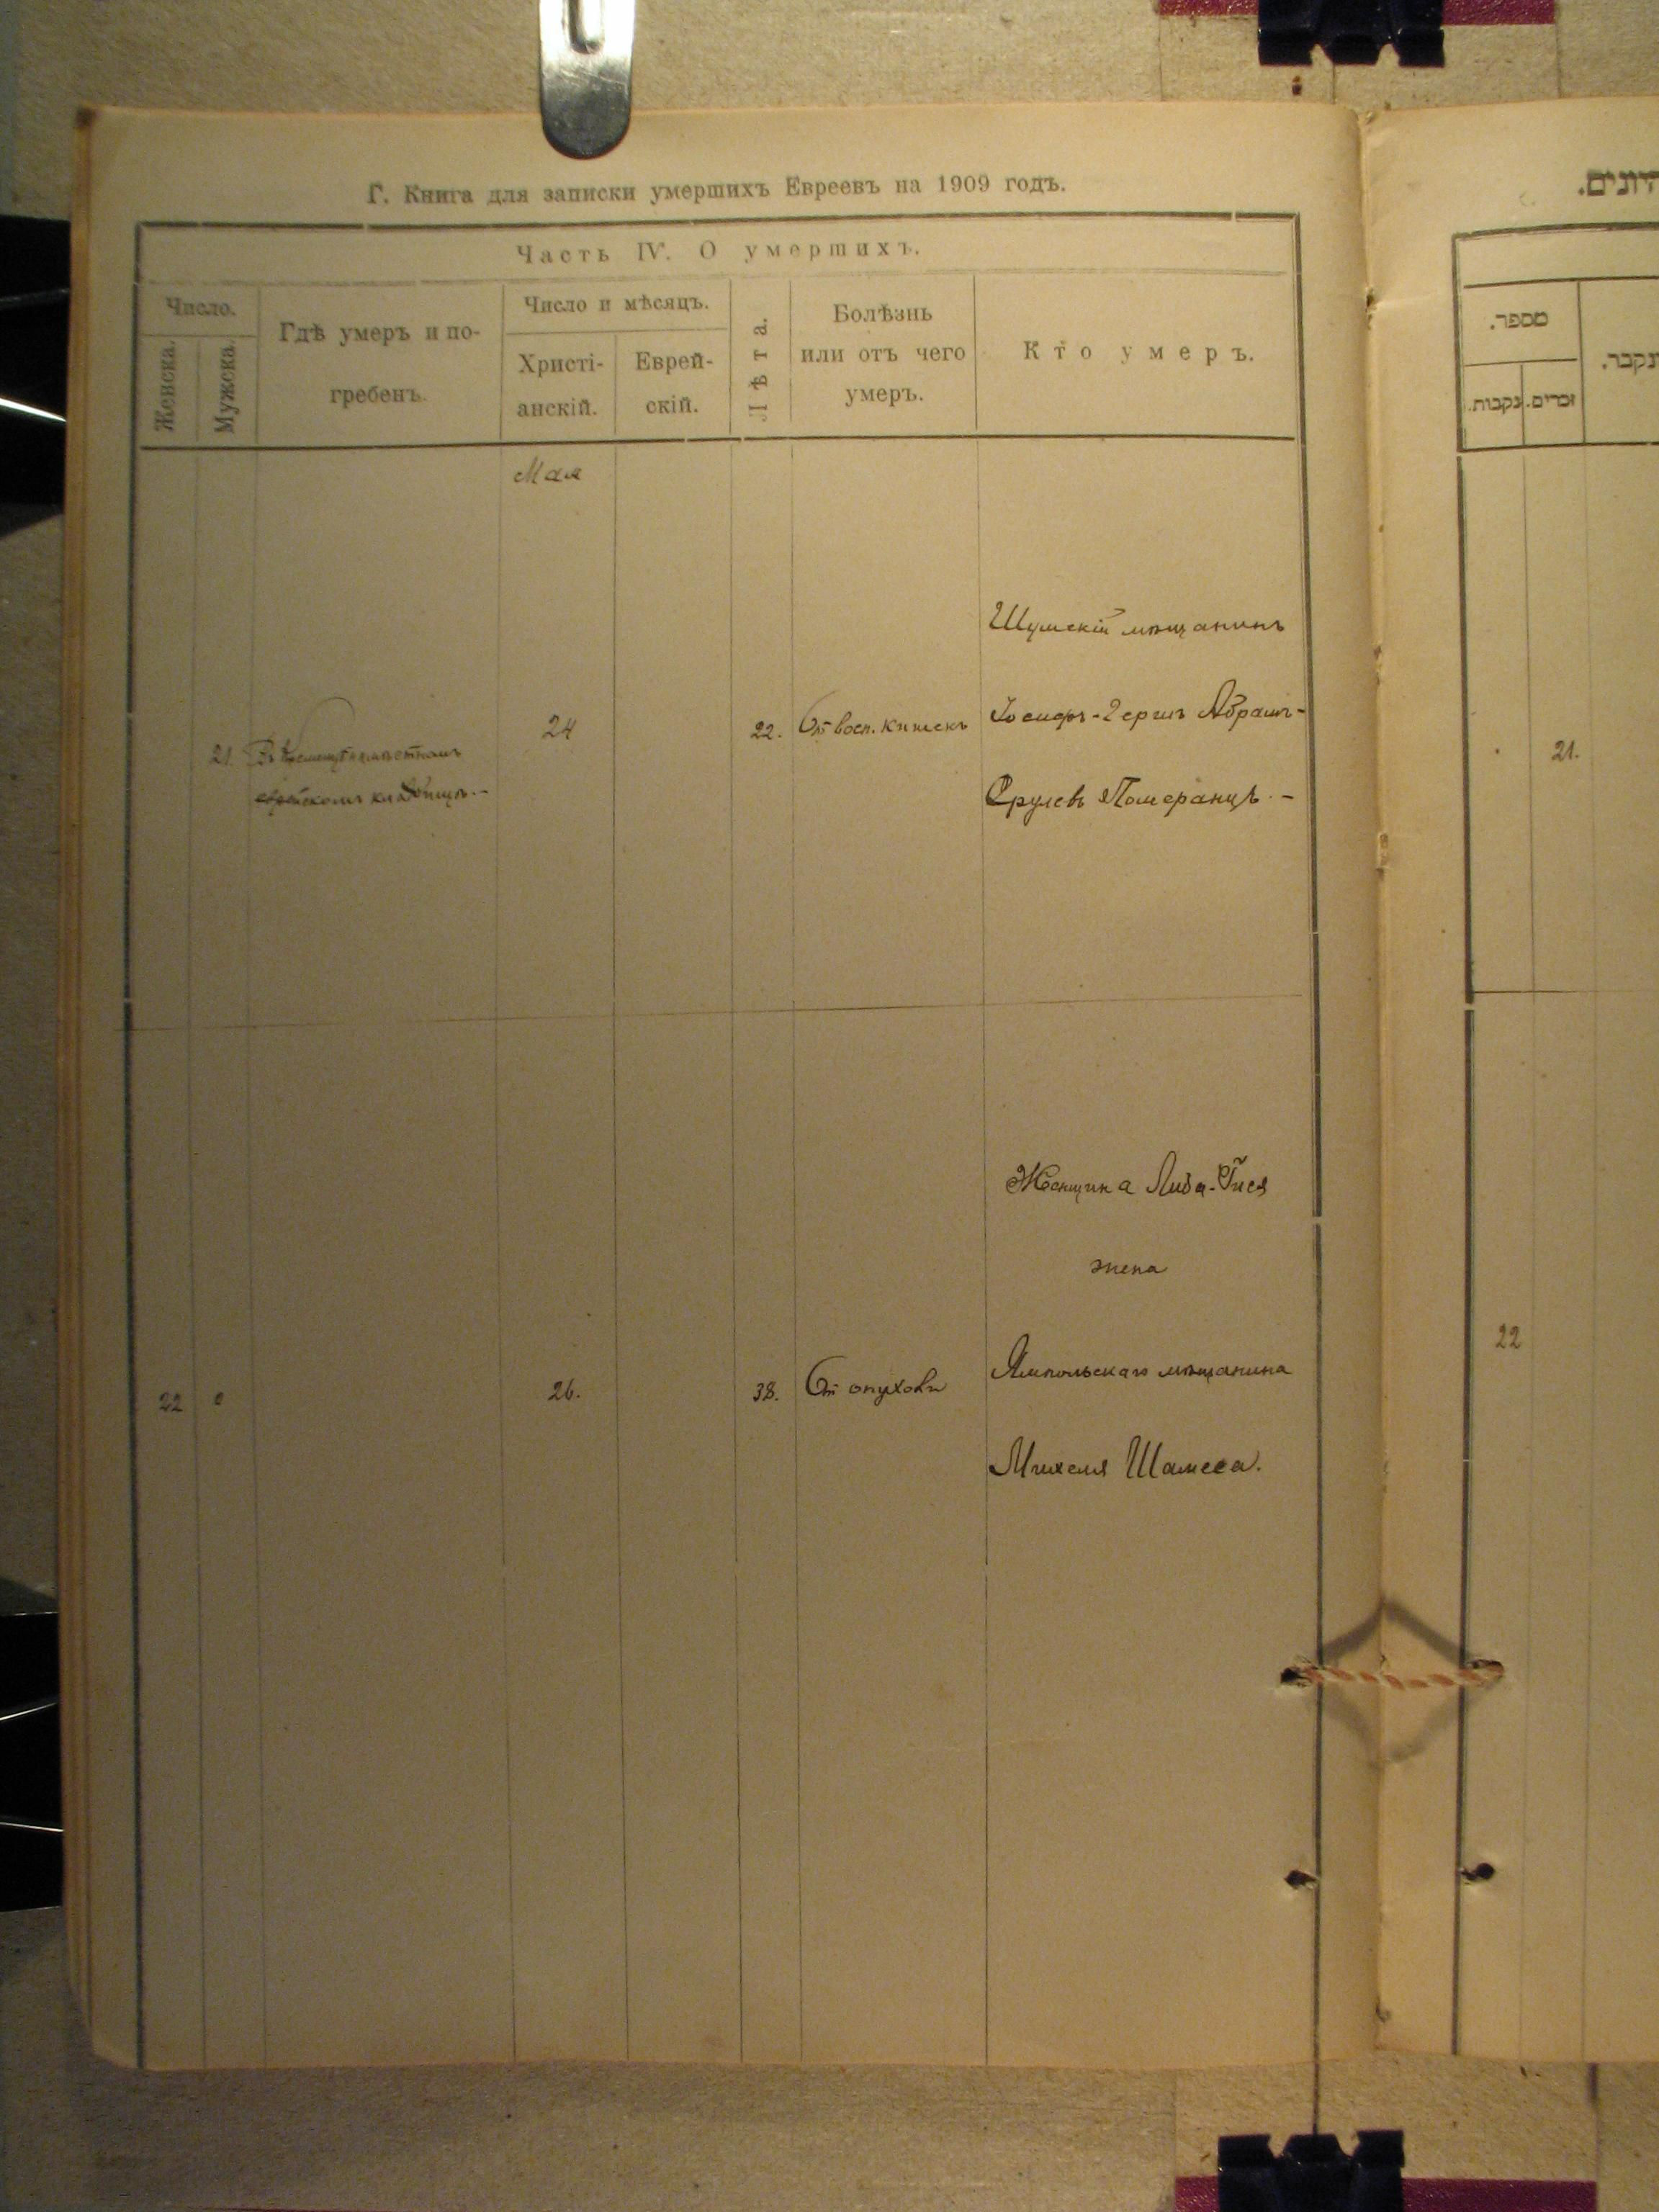 Г. Книга для записки умершихъ Евреевъ на 1909 годъ.
Часть IV. О умершихъ.
Число.
Женска.
Мужска.
Гдѣ умеръ и по-
гребенъ.
Число и мѣсяцъ.
Христі-
анскій.
Еврей-
скій.
Лѣта.
Болѣзнь
или отъ чего
умеръ.
Кто умеръ.
Мая
21.
еврейскомъ кладбищѣ.-
24
22.
От восп. кишекъ
Шумскій мѣщанинъ
Іосифъ-Герш Абрам-
Срулевъ Померанцъ.-
22
0
26.
38.
От опухоли
Женщина Либа-
жена
Ямпольскаго мѣщанина
Михеля Шамеса.
מספר.
זכרים.
נקבות.
21.
22